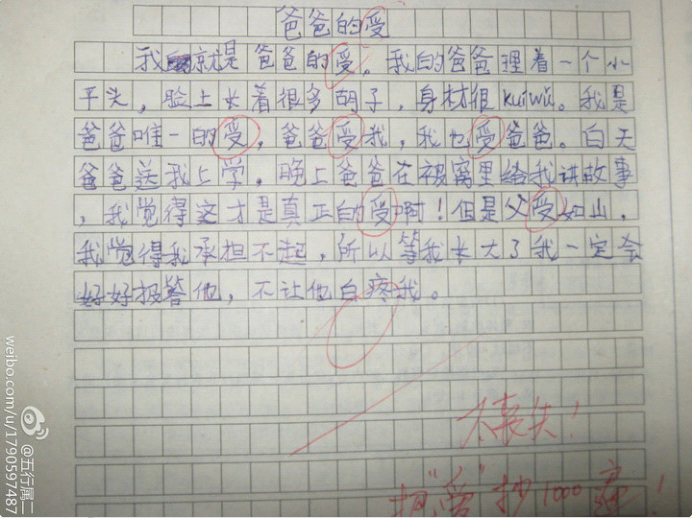 爸爸的受
我就是爸爸的受。我的爸爸理着一个小
平头，脸上长着很多胡子，身材很kuiwǔ。我是
爸爸唯一的受，爸爸受我，我也受爸爸。白天
爸爸送我上学，晚上爸爸在被窝里给我讲故事
，我觉得这才是真正的受啊！但是父受如山，
我觉得我承担不起，所以等我长大了我一定会
好好报答他，不让他白疼我。
太丧失！
把"爱"抄1000遍！
weibo.com/u/1790597487
@五行属二